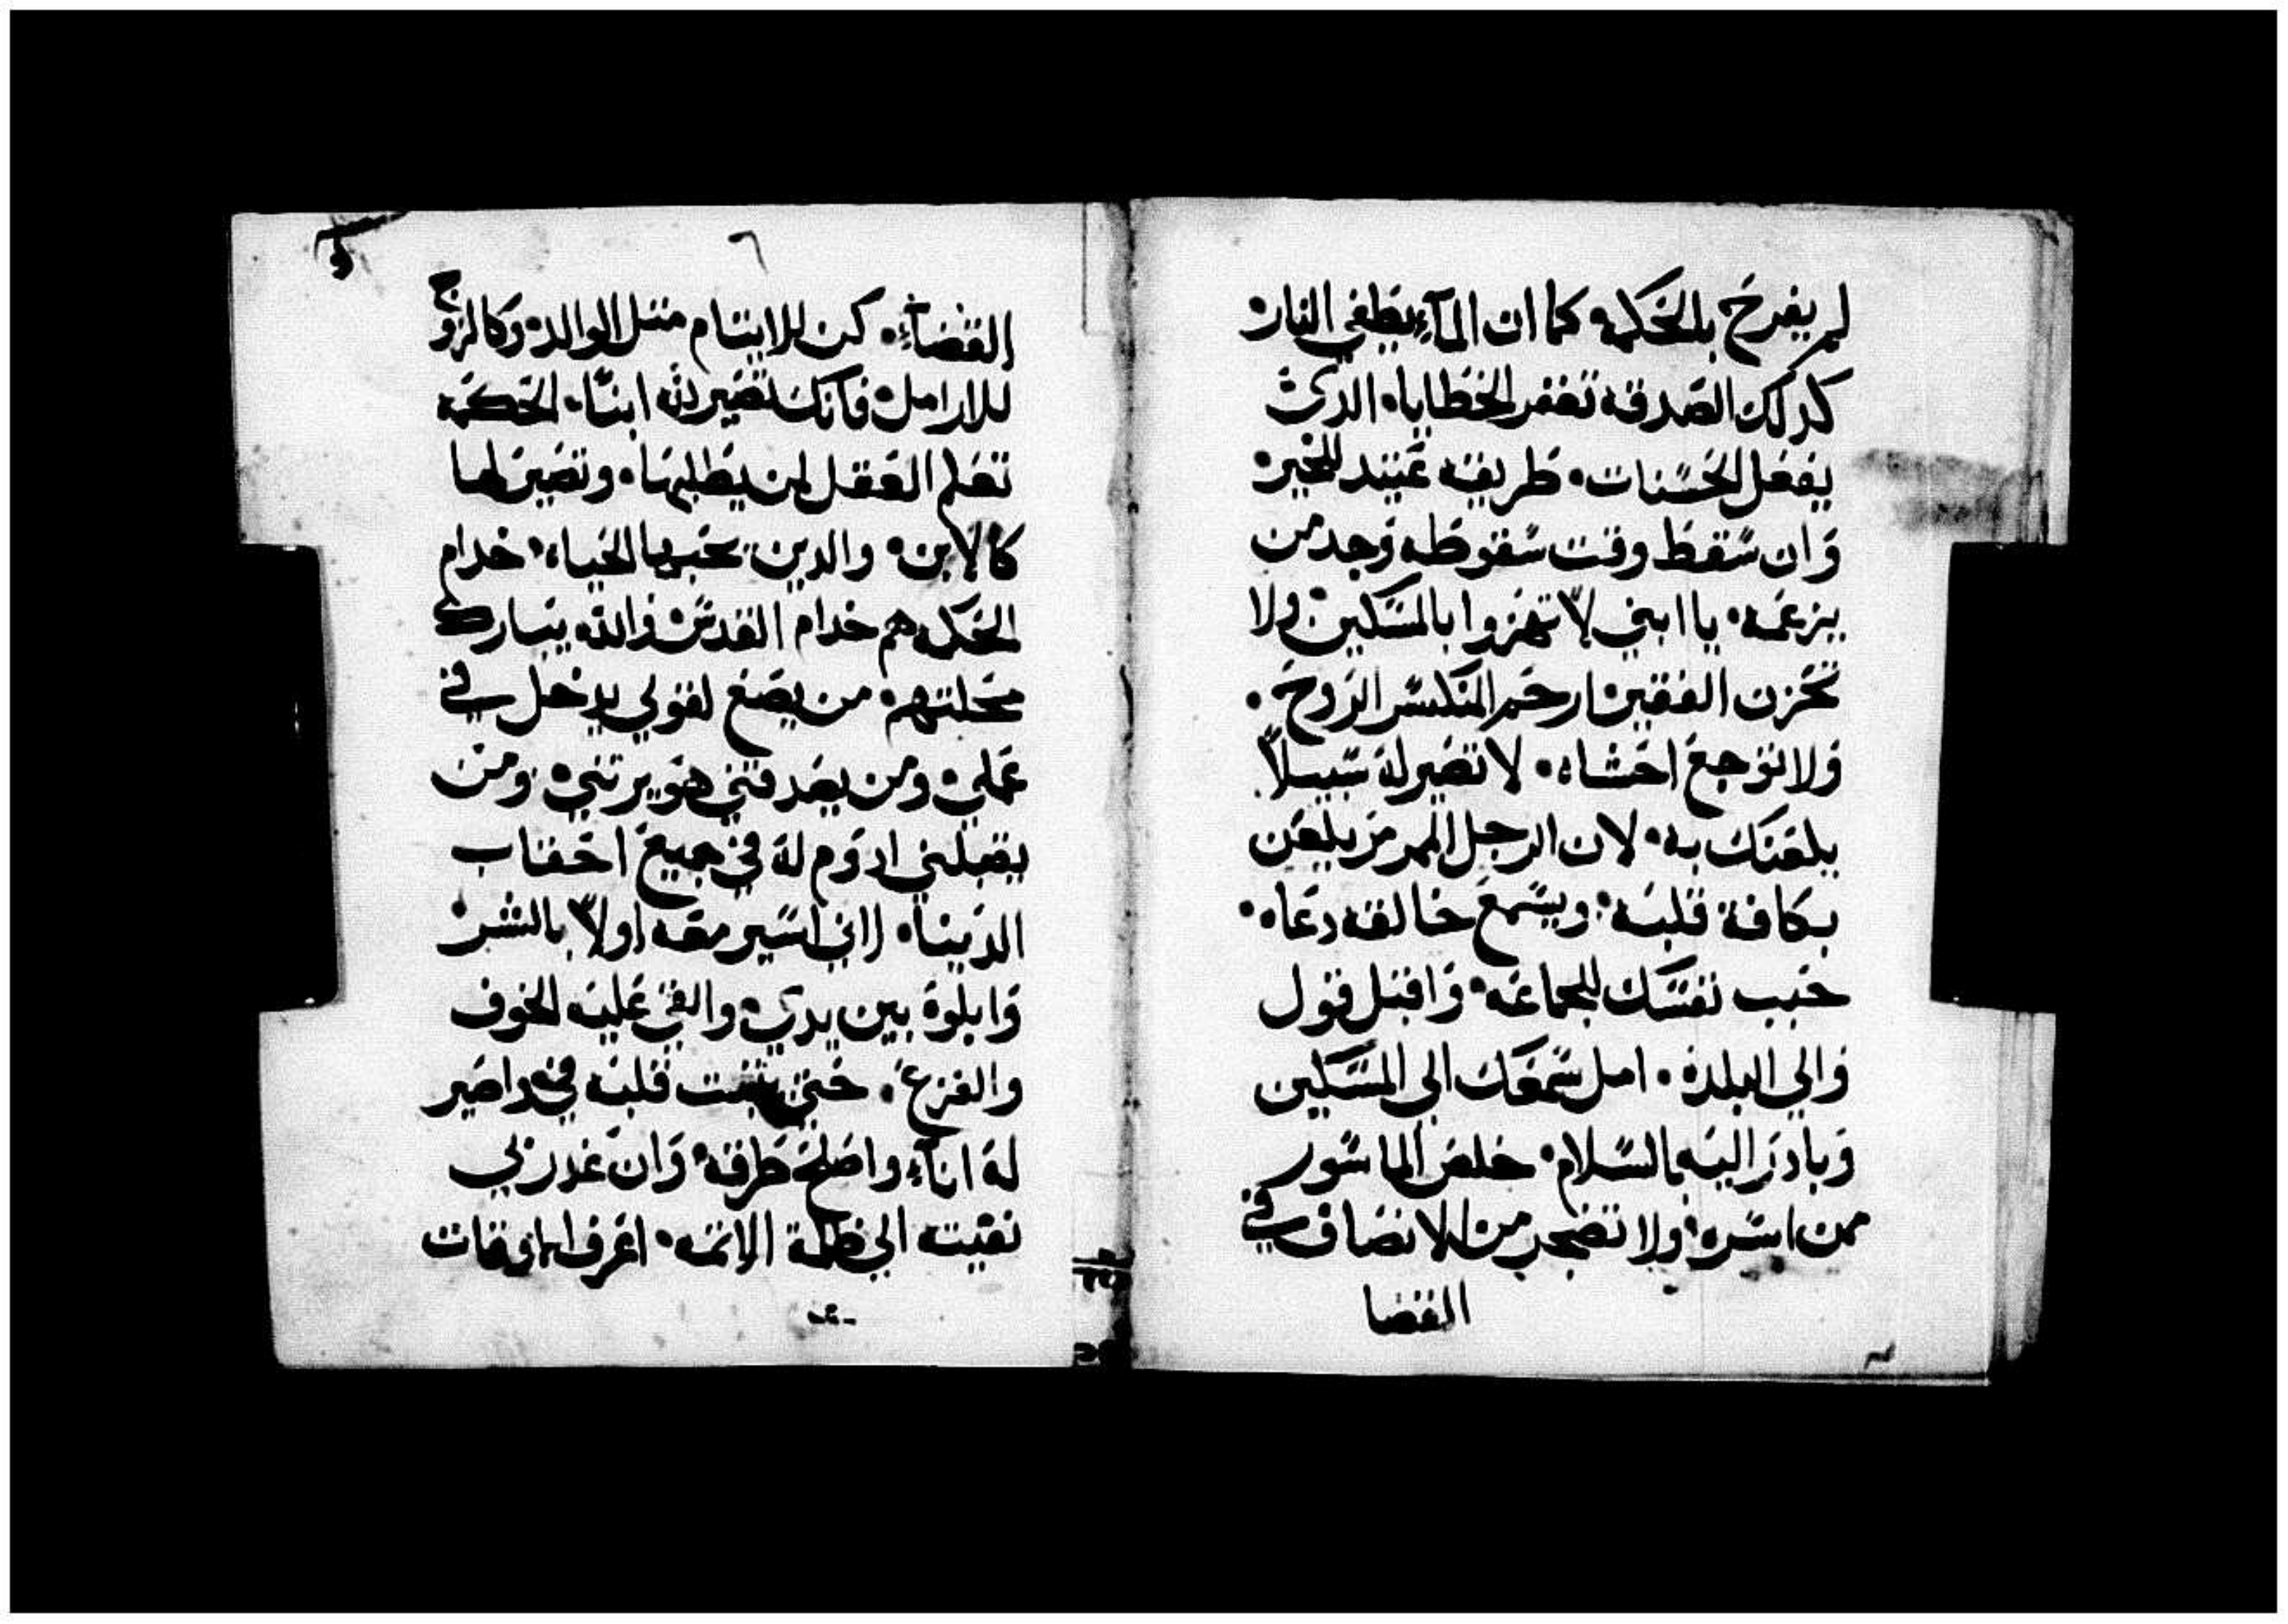 لم يفرح بالحكمه كما ان المآء يطفي النار
كدلك الصدقة تغفر الخطايا. الدي
يفعل الحسنات. طريقه عتيد للخير
وان سقط وقت سقوطه وجد من
يزعمه. يا ابني لا تهزوا بالمسكين ولا
تحزن الفقير ارحم المنكسر الروح.
ولا توجع احشاه. لا تصير له سبيلاً
يلعنك به. لان الرجل الممرمر يلعن
بكافة قلبه. ويسمع خالقه دعاه.
حبب نفسك للجماعه. واقبل قول
والي البلده. امل سمعك الي المسكين
وبادر اليه بالسلام. خلص الماسور
ممن اسره. ولا تضجر من الانصاف في
القضا
٦
القضاء. كن للايتام متل الوالد وكالزوج
للارامل فانك تصير لله ابناً. الحكمه
تعلم العقل لمن يطلبها. وتصير لها
كالابن. والدين يحبها الحياه. خدام
الحكمه هم خدام القدس والله يبارك
محلتهم. من يصغ لقولي يدخل في
عملي ومن يصدقني هو يرتني ومن
يقبلني ادوم له في جميع احقاب
الدنيا. اني اسير معه اولاً بالشر
وابلوه بين يدي والقي عليه الخوف
والفزع. حتي يتبت قلبه في واصير
له اناء واصلح طرقه وان غدر بي
نفيته الي ظلمة الاتمه. اعرف اوقات